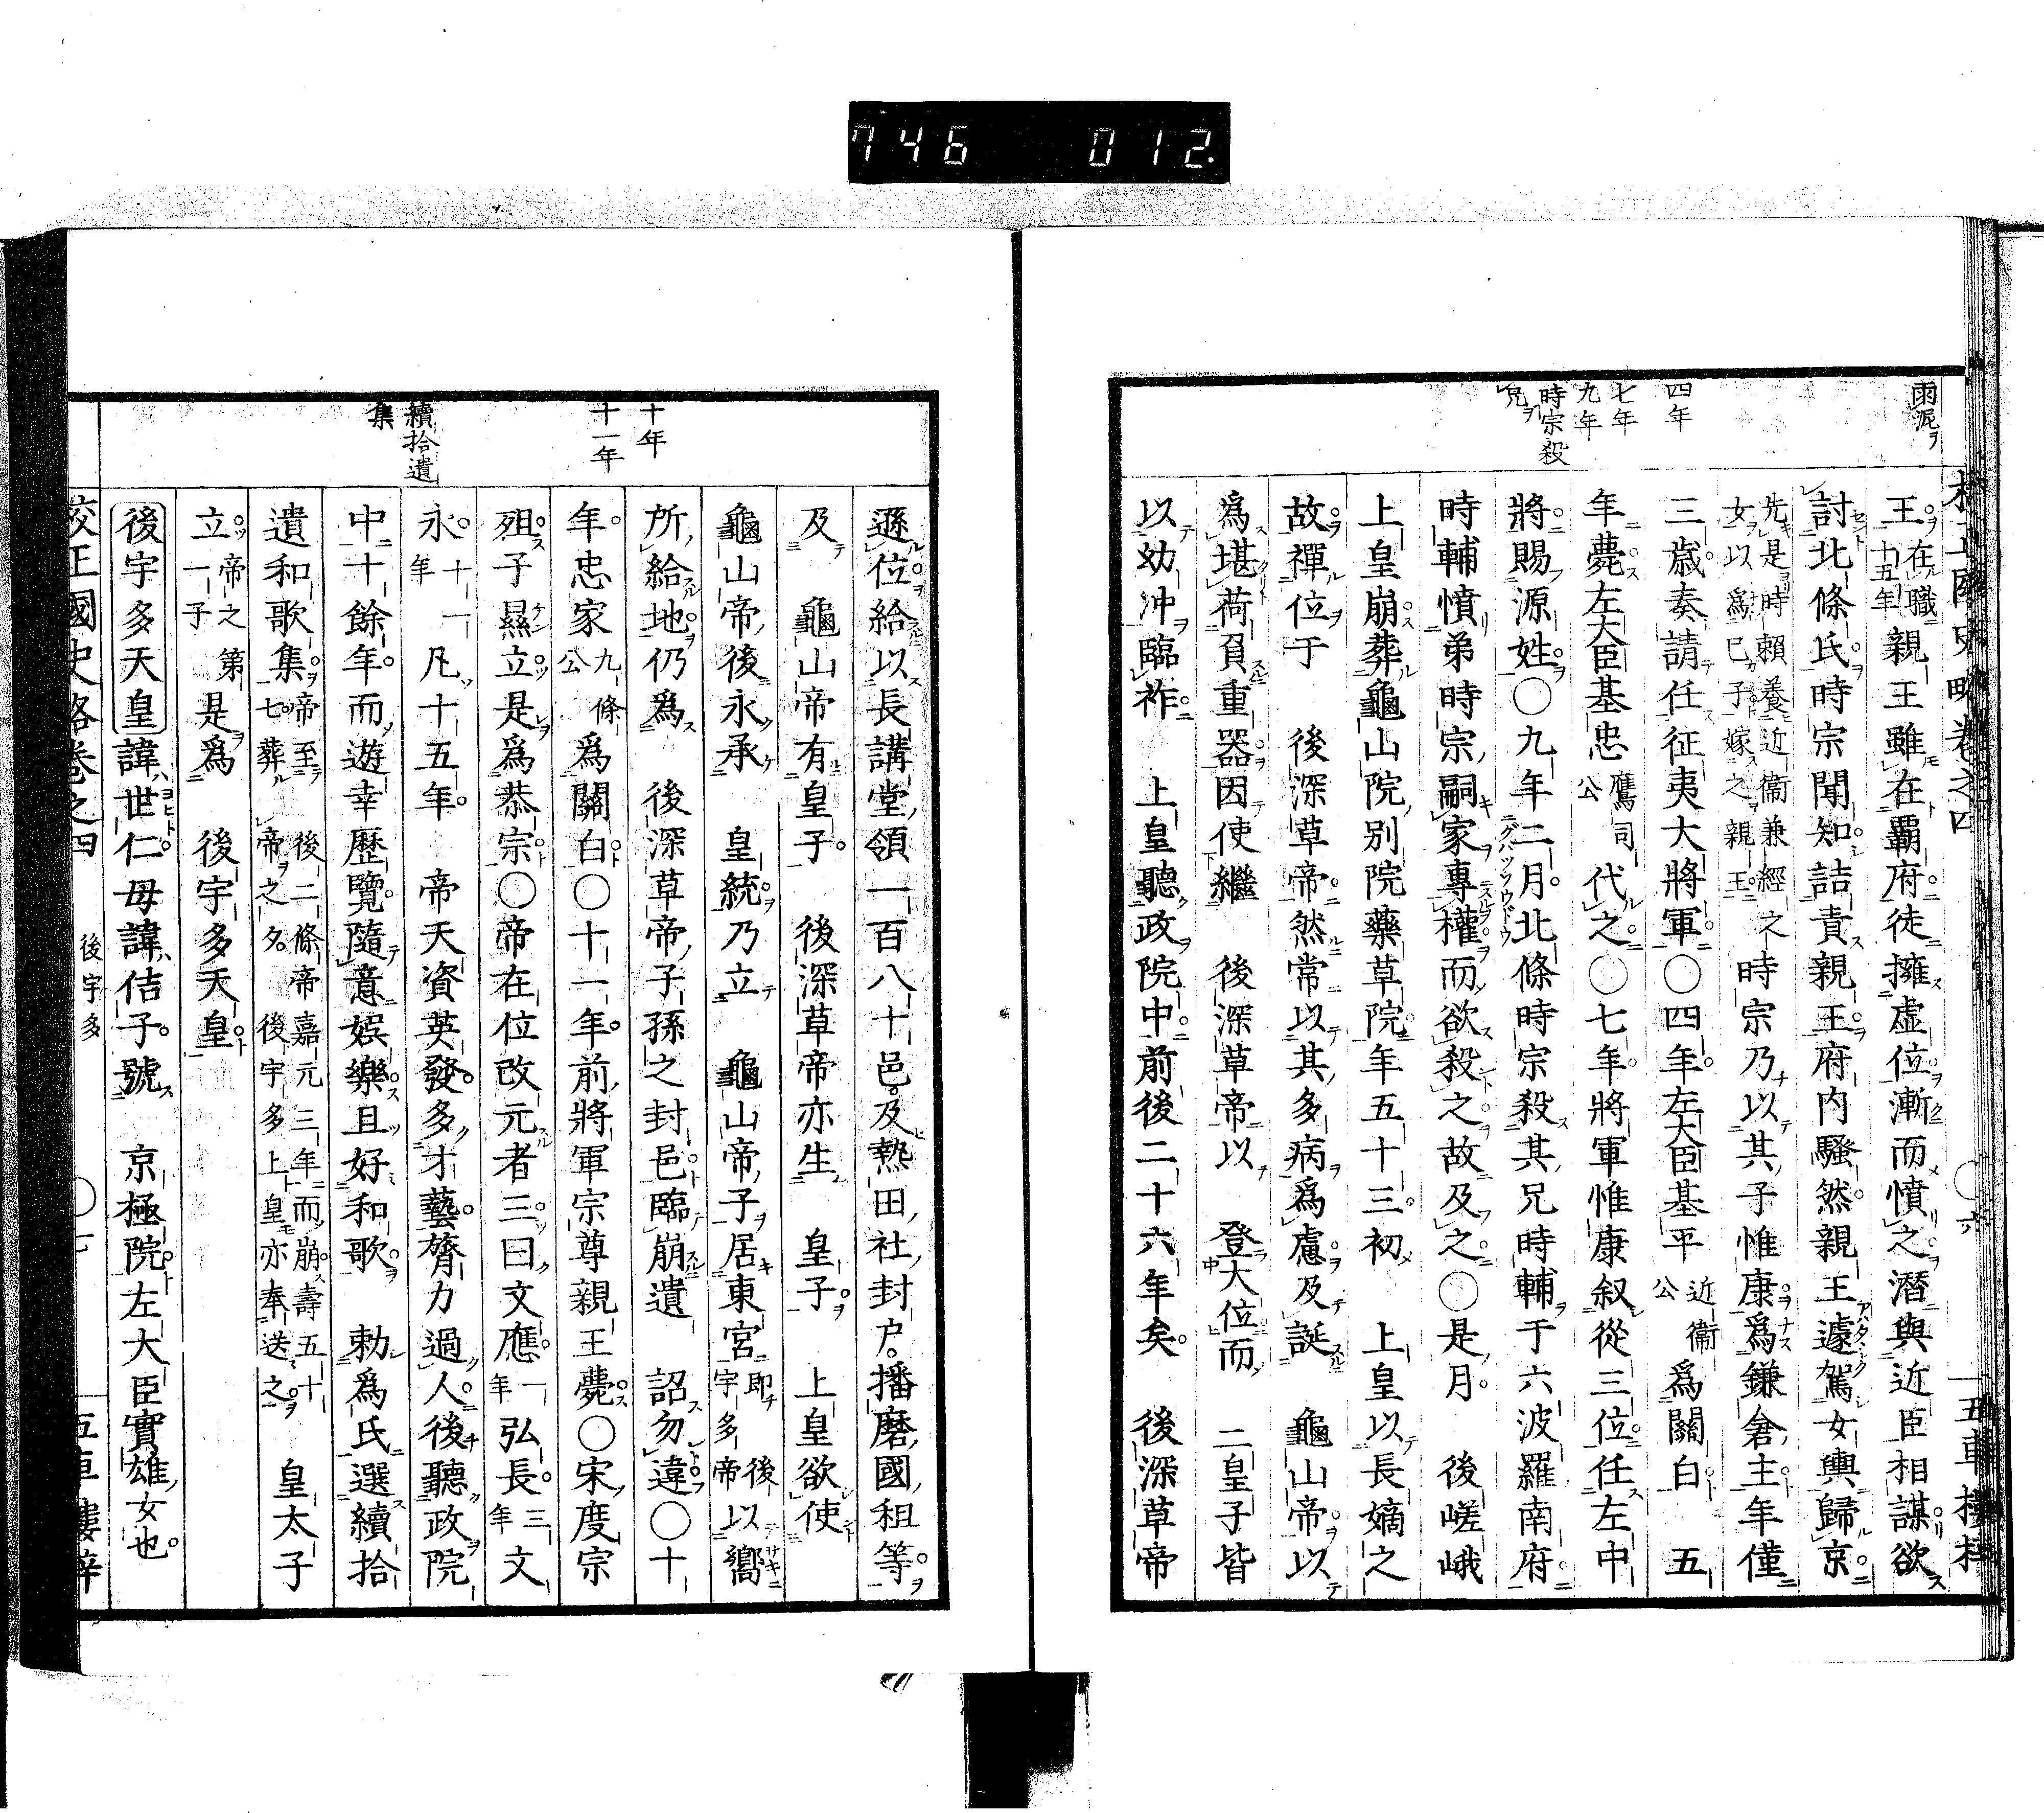 746 012.
雨泥ヲ
四年
七年
九年
時宗殺
兄ヲ
王在職十五年親王雖在覇府徒擁虚位漸而憤之潛與近臣相謀欲
討北條氏時宗聞知詰責親王府内騷然親王遽駕女輿歸京
先是時賴養近衞兼經之
女以爲已子嫁之親王
時宗乃以其子惟康爲鎌倉主年僅
三歳奏請任征夷大將軍〇四年左大臣基平近衞公爲關白　五
年薨左大臣基忠鷹司公代之〇七年將軍惟康叙從三位任左中
將賜源姓〇九年二月北條時宗殺其兄時輔于六波羅南府
時輔憤弟時宗嗣家專權而欲殺之故及之〇是月　後嵯峨
上皇崩葬龜山院別院藥草院年五十三初　上皇以長嫡之
故禪位于　後深草帝然常以其多病爲慮及誕　龜山帝以
爲堪荷負重器因使繼　後深草帝以　登大位而　二皇子皆
以幼冲臨祚　上皇聽政院中前後二十六年矣　後深草帝
十年
十一年
續拾遺
集
遜位給以長講堂領一百八十邑及熱田社封戶播磨國租等
及　龜山帝有皇子　後深草帝亦生　皇子　上皇欲使
龜山帝後永承　皇統乃立　龜山帝子居東宮即後宇多帝以嚮
所給地仍爲　後深草帝子孫之封邑臨崩遺　詔勿違〇十
年忠家九條公爲關白〇十一年前將軍宗尊親王薨〇宋度宗
殂子㬎立是爲恭宗〇帝在位改元者三曰文應一年弘長三年文
永十一年凡十五年　帝天資英發多才藝膂力過人後聽政院
中十餘年而遊幸歷覽隨意娯樂且好和歌　勅爲氏選續拾
遺和歌集帝至後二條帝嘉元三年而崩壽五十
七葬帝之夕後宇多上皇亦奉送之
皇太子
立帝之第一子是爲　後宇多天皇
後宇多天皇諱世仁母諱佶子號　京極院左大臣實雄女也
校正國史略卷之四　後宇多